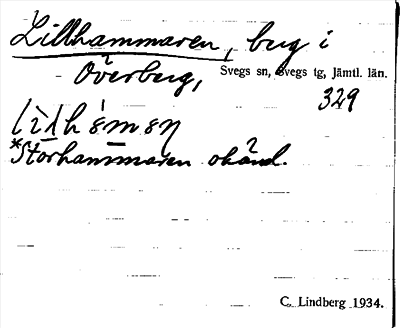 Lillhammaren, bug i
Överberg,
Svegs sn, Svegs tg, Jämtl. län.
329
*Storhammaren okänd.
C. Lindberg 1934.